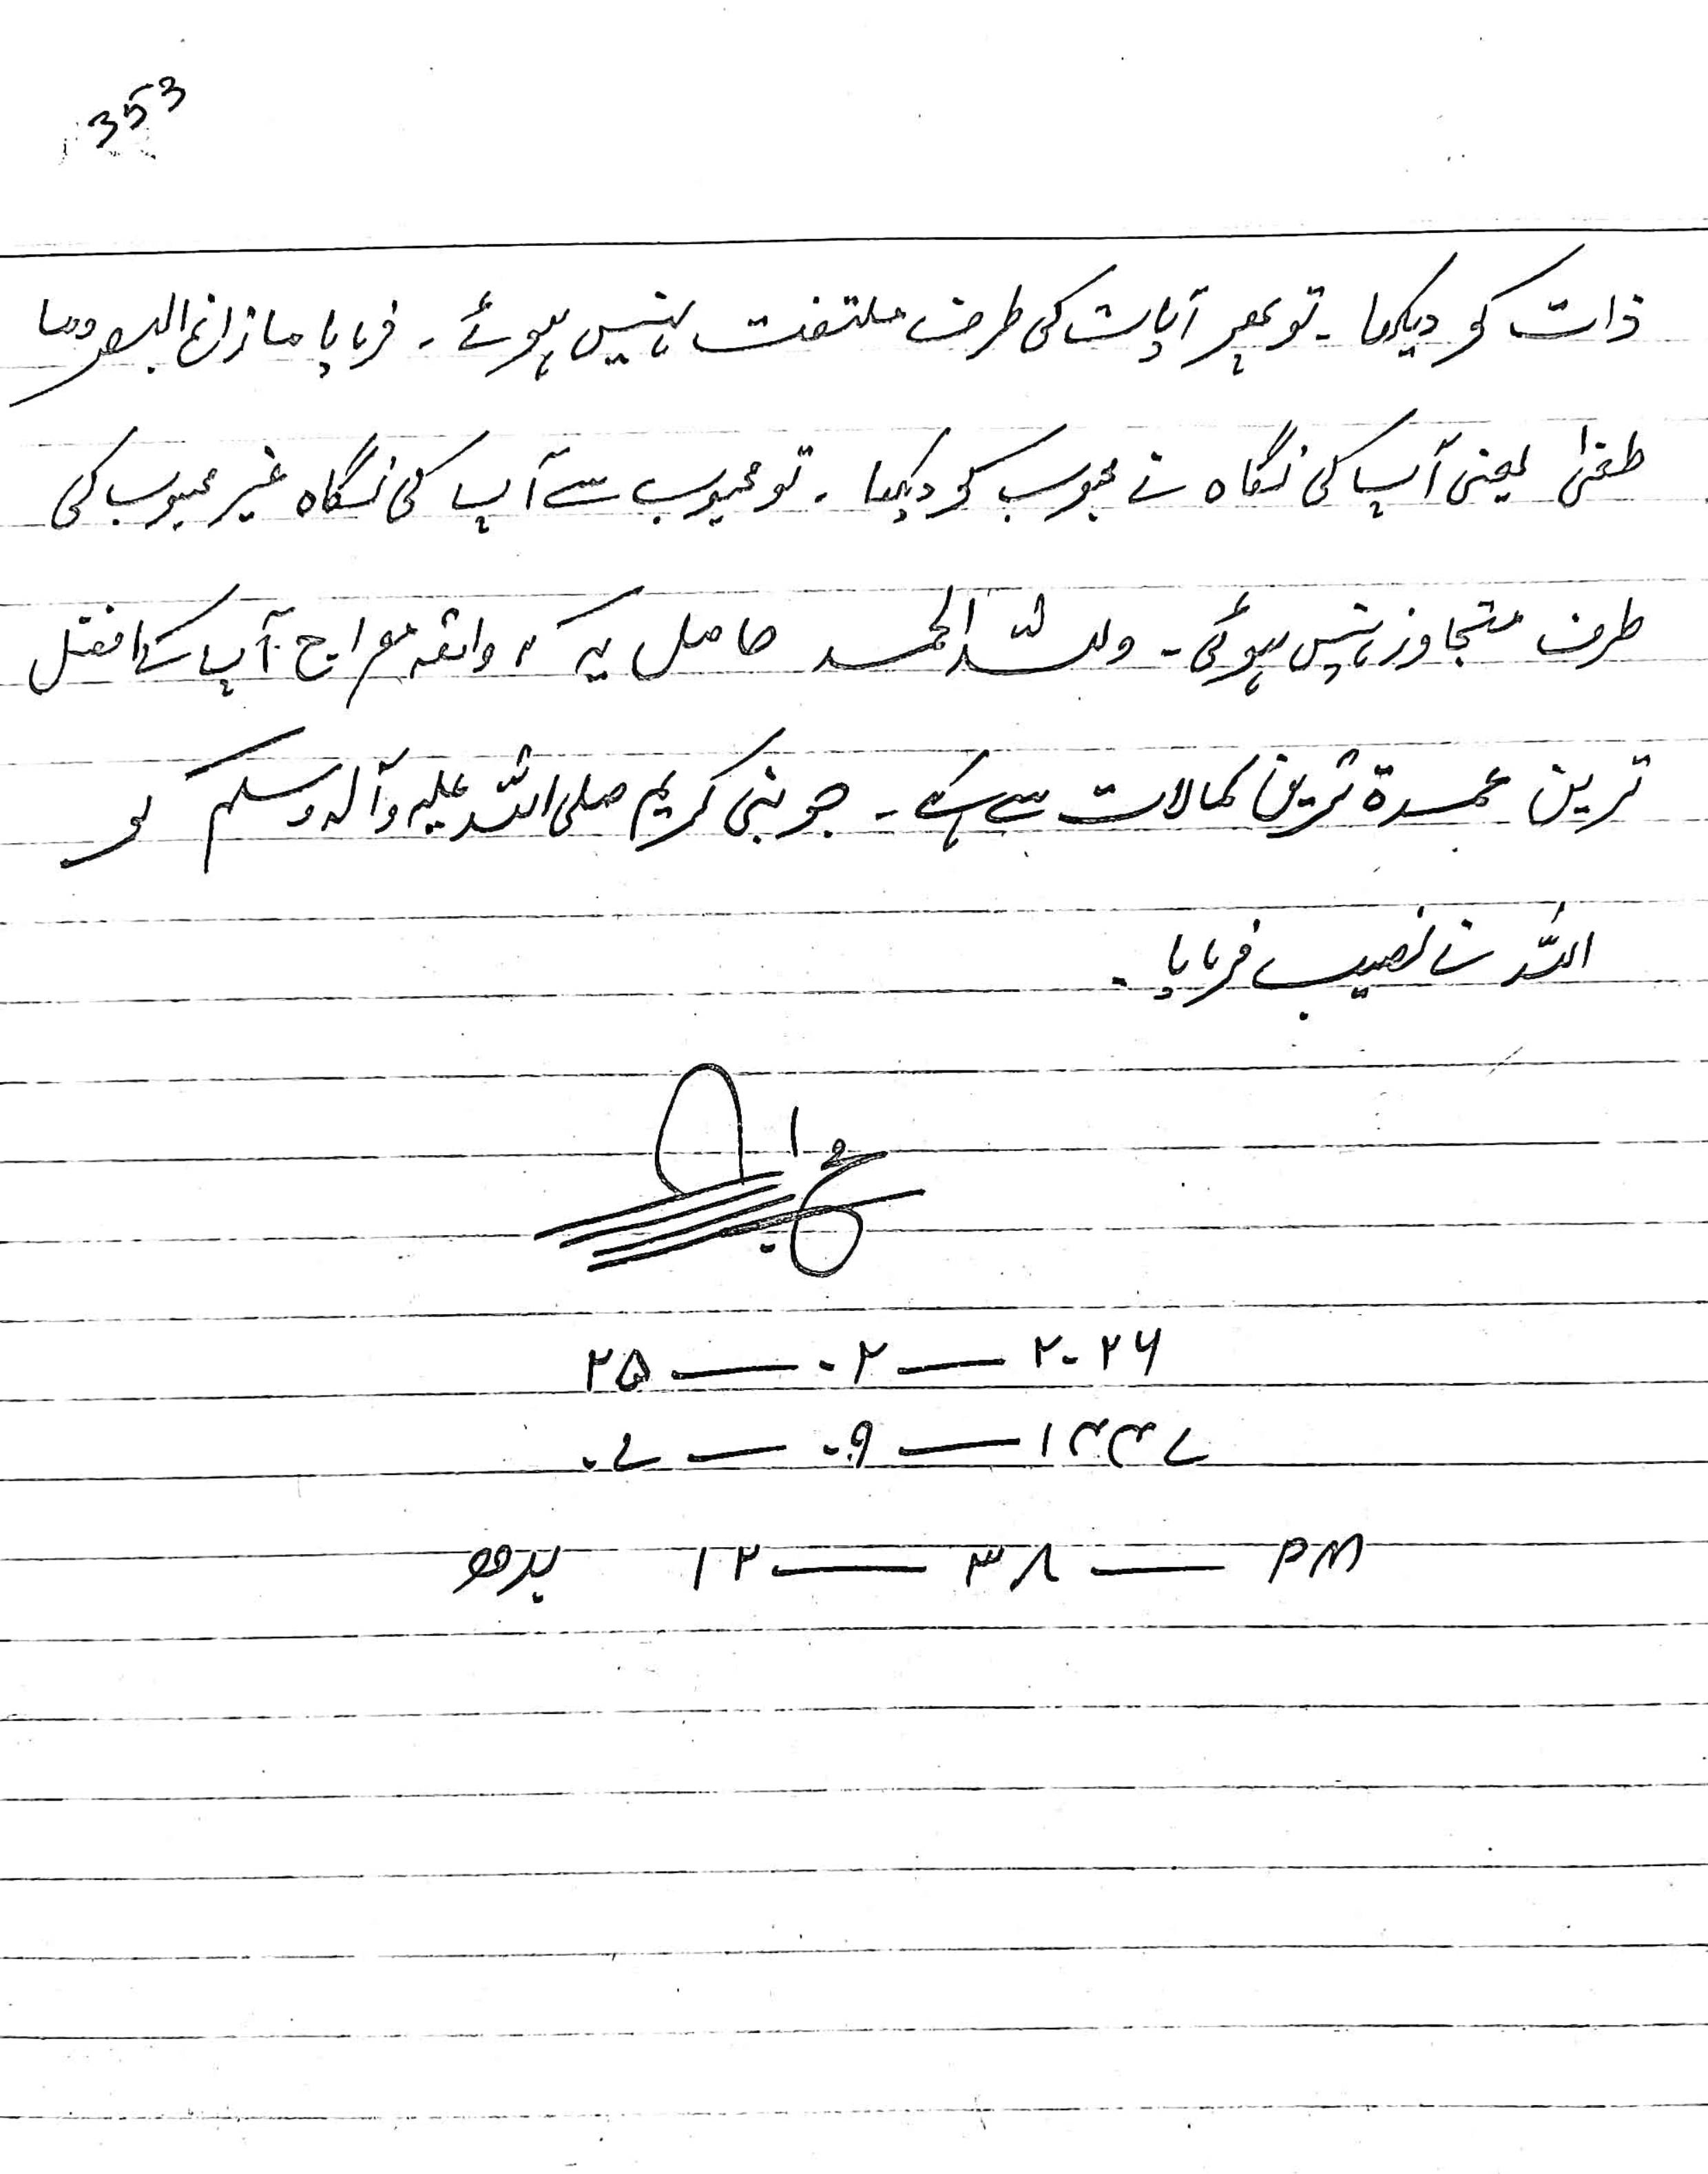 353
ذات کو دیکھا ۔ تو پھر آیات کی طرف ملتفت نہیں ہوئے ۔ فرمایا مازاغ البصر وما
طغیٰ یعنی آپ کی نگاہ نے محبوب کو دیکھا ۔ تو محبوب سے آپ کی نگاہ غیر محبوب کی
طرف متجاوز نہیں ہوئی ۔ وللہ الحمد حاصل یہ کہ واقعہ معراج آپ کے افضل
ترین عمدۃ ترین کمالات سے ہے ۔ جو نبی کریم صلی اللہ علیہ وآلہ وسلم کو
اللہ نے نصیب فرمایا ۔
۲۵ — ۰۲ — ۲۰۲۶
۰۷ — ۰۹ — ۱۴۴۷
بدھ ۱۲ — ۳۸ — PM